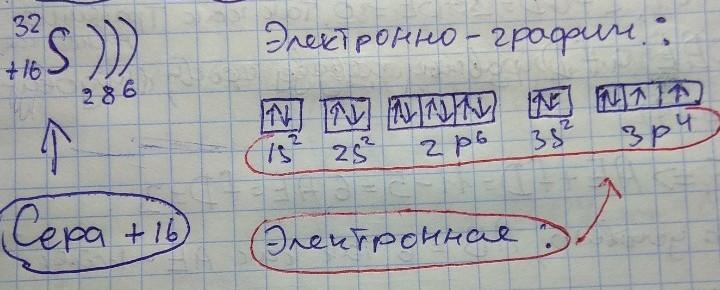 32
+16 S )))
2 8 6
Электронно-графич.:
↑↓ ↑↓ ↑↓ ↑↓ ↑↓ ↑↓ ↑↓ ↑ ↑
1s² 2s² 2p⁶ 3s² 3p⁴
Сера +16
Электронная: